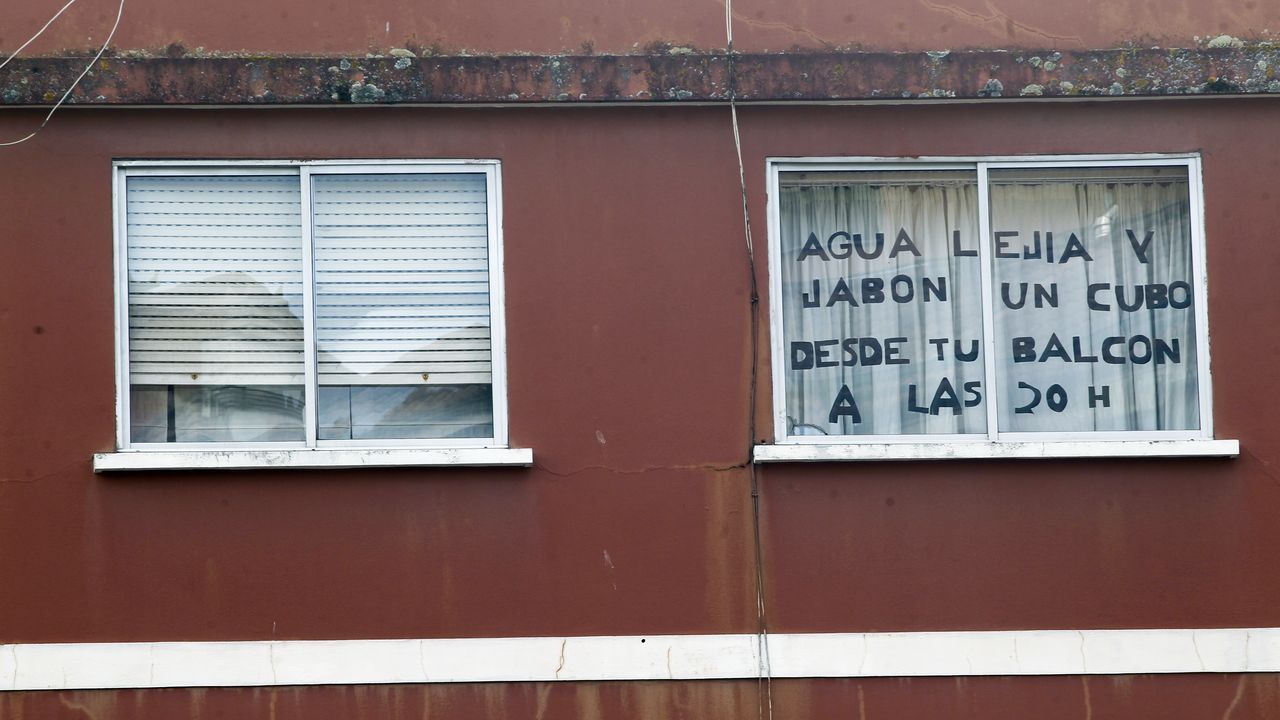 AGUA LEJIA Y
JABON UN CUBO
DESDE TU BALCON
A LAS 20 H